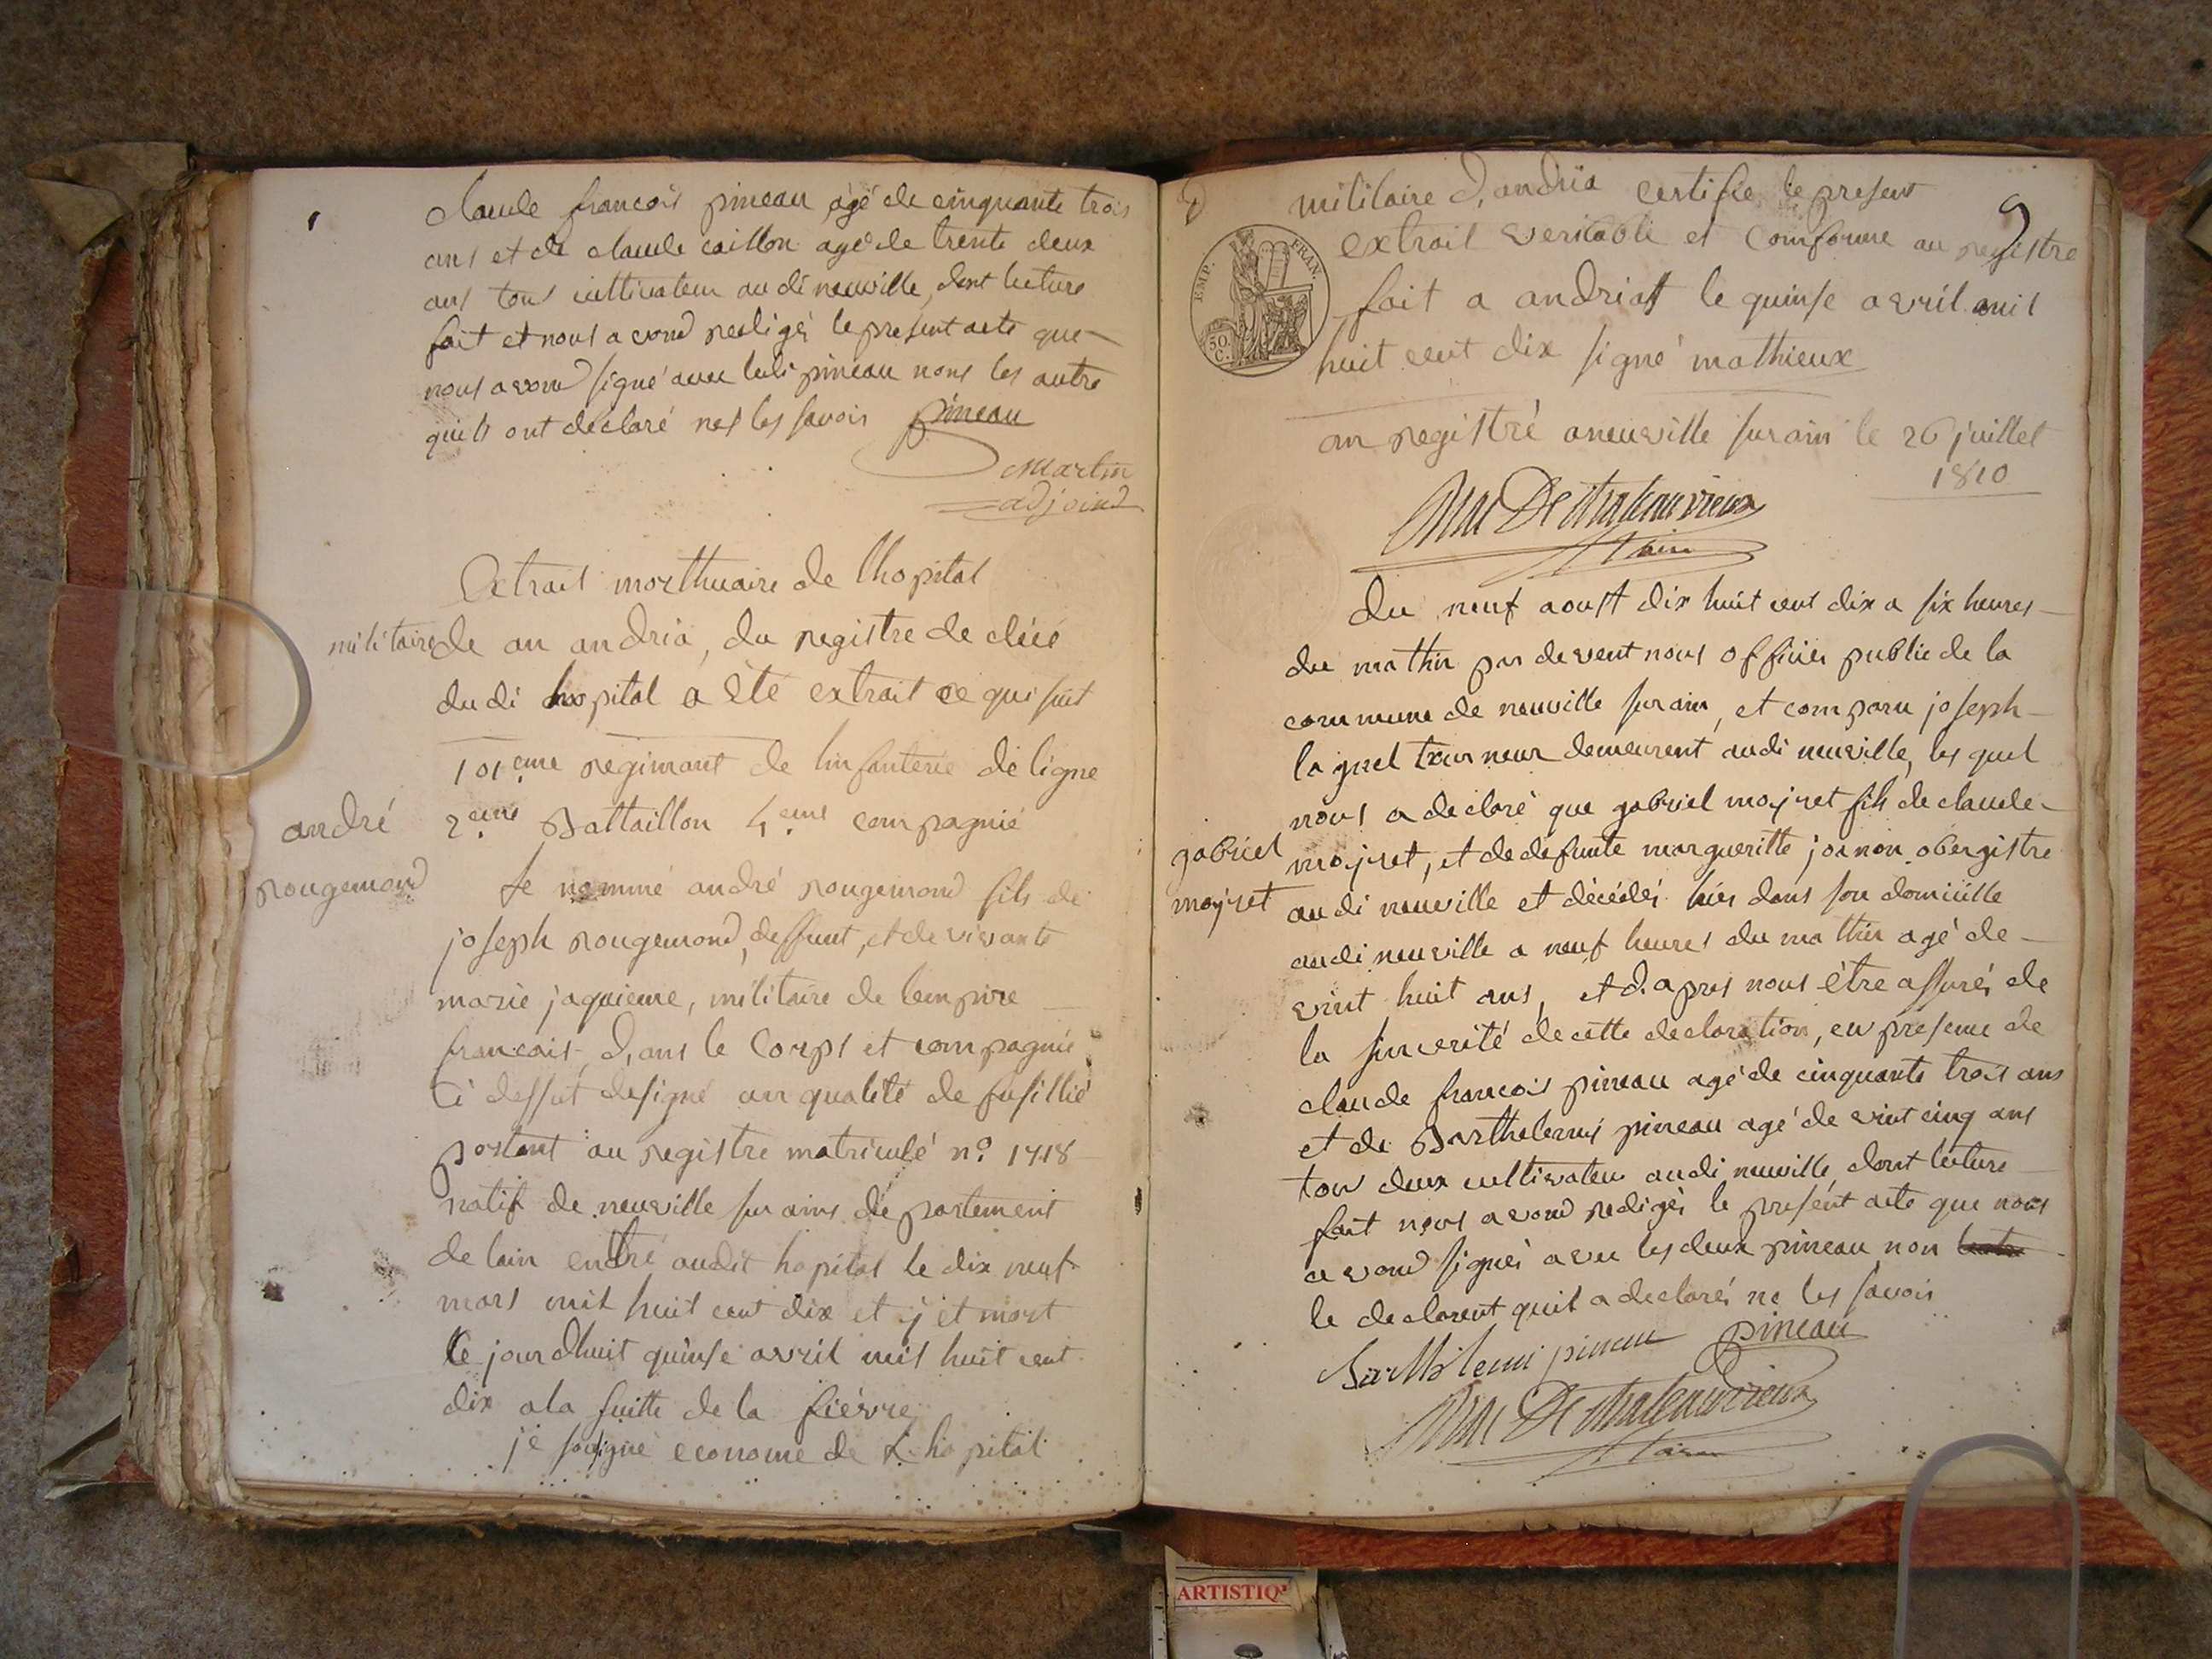 claude francois pineau agé de cinquante trois
ans et de claude caillon agé de trente deux
ans tous cultivateur au di neuville, dont lecture
fait et nous avond redigé le present acte que
nous avond signé avec ledi pineau nons les autre
quils ont déclaré nes les savoir pineau
Martin
adjoind
Extrait morthuaire de lhopital
militaire de an andria, du registre de décé
du di hopital a été extrait ce qui suit
101eme regimant de linfanterie de ligne
2eme Battaillon 4eme compagnié
andré
rougemond
Le nommé andré rougemond fils de
joseph rougemond, deffunt, et de vivante
marie jaquieme, militaire de lempire
francais, d,ans le Corps et compagnié
Ci dessut designé an qualité de fusillié
portant au registre matriculé n.º 1718
natif de neuville sur ains departement
de lain entré audit hopital le dix neuf
mars mil huit cent dix et y et mort
le jourdhuit quinse avril mil huit cent
dix a la suitte de la fiévre
je sousigné econome de L hopital
9
militaire d,andria certifie le present
extrait veritable et comforme au registre
EMP. FRAN.
50. C.
fait a andria le quinse avril mil
huit cent dix signé mathieux
an registré a neuville sur ain le 26 juillet
1810
Maire
Du neuf aoust dix huit cent dix a six heures
du mathin par devent nous officier public de la
commune de neuville sur ain, et comparu joseph
laguel tourneur demeurent audi neuville, les quel
nous a declaré que gabriel mayret fils de claude
gabriel
mayret
mayret, et de défunte margueritte joanon obergistre
au di neuville et décédé hier dans son domicille
audi neuville a neuf heures du mathin agé de
vint huit ans, et d.apres nous être assuré de
la sincerité de cette declaration, en présence de
claude francois pineau agé de cinquante trois ans
et de Barthelemi pineau agé de vint cinq ans
tou deux cultivateur audi neuville dont lecture
fait nous avond redigé le présent acte que nous
avond signé avec les deux pineau non
le declarent quil a declaré ne les savoir
Barthelemi pineau pineau
Maire
ARTISTIQ